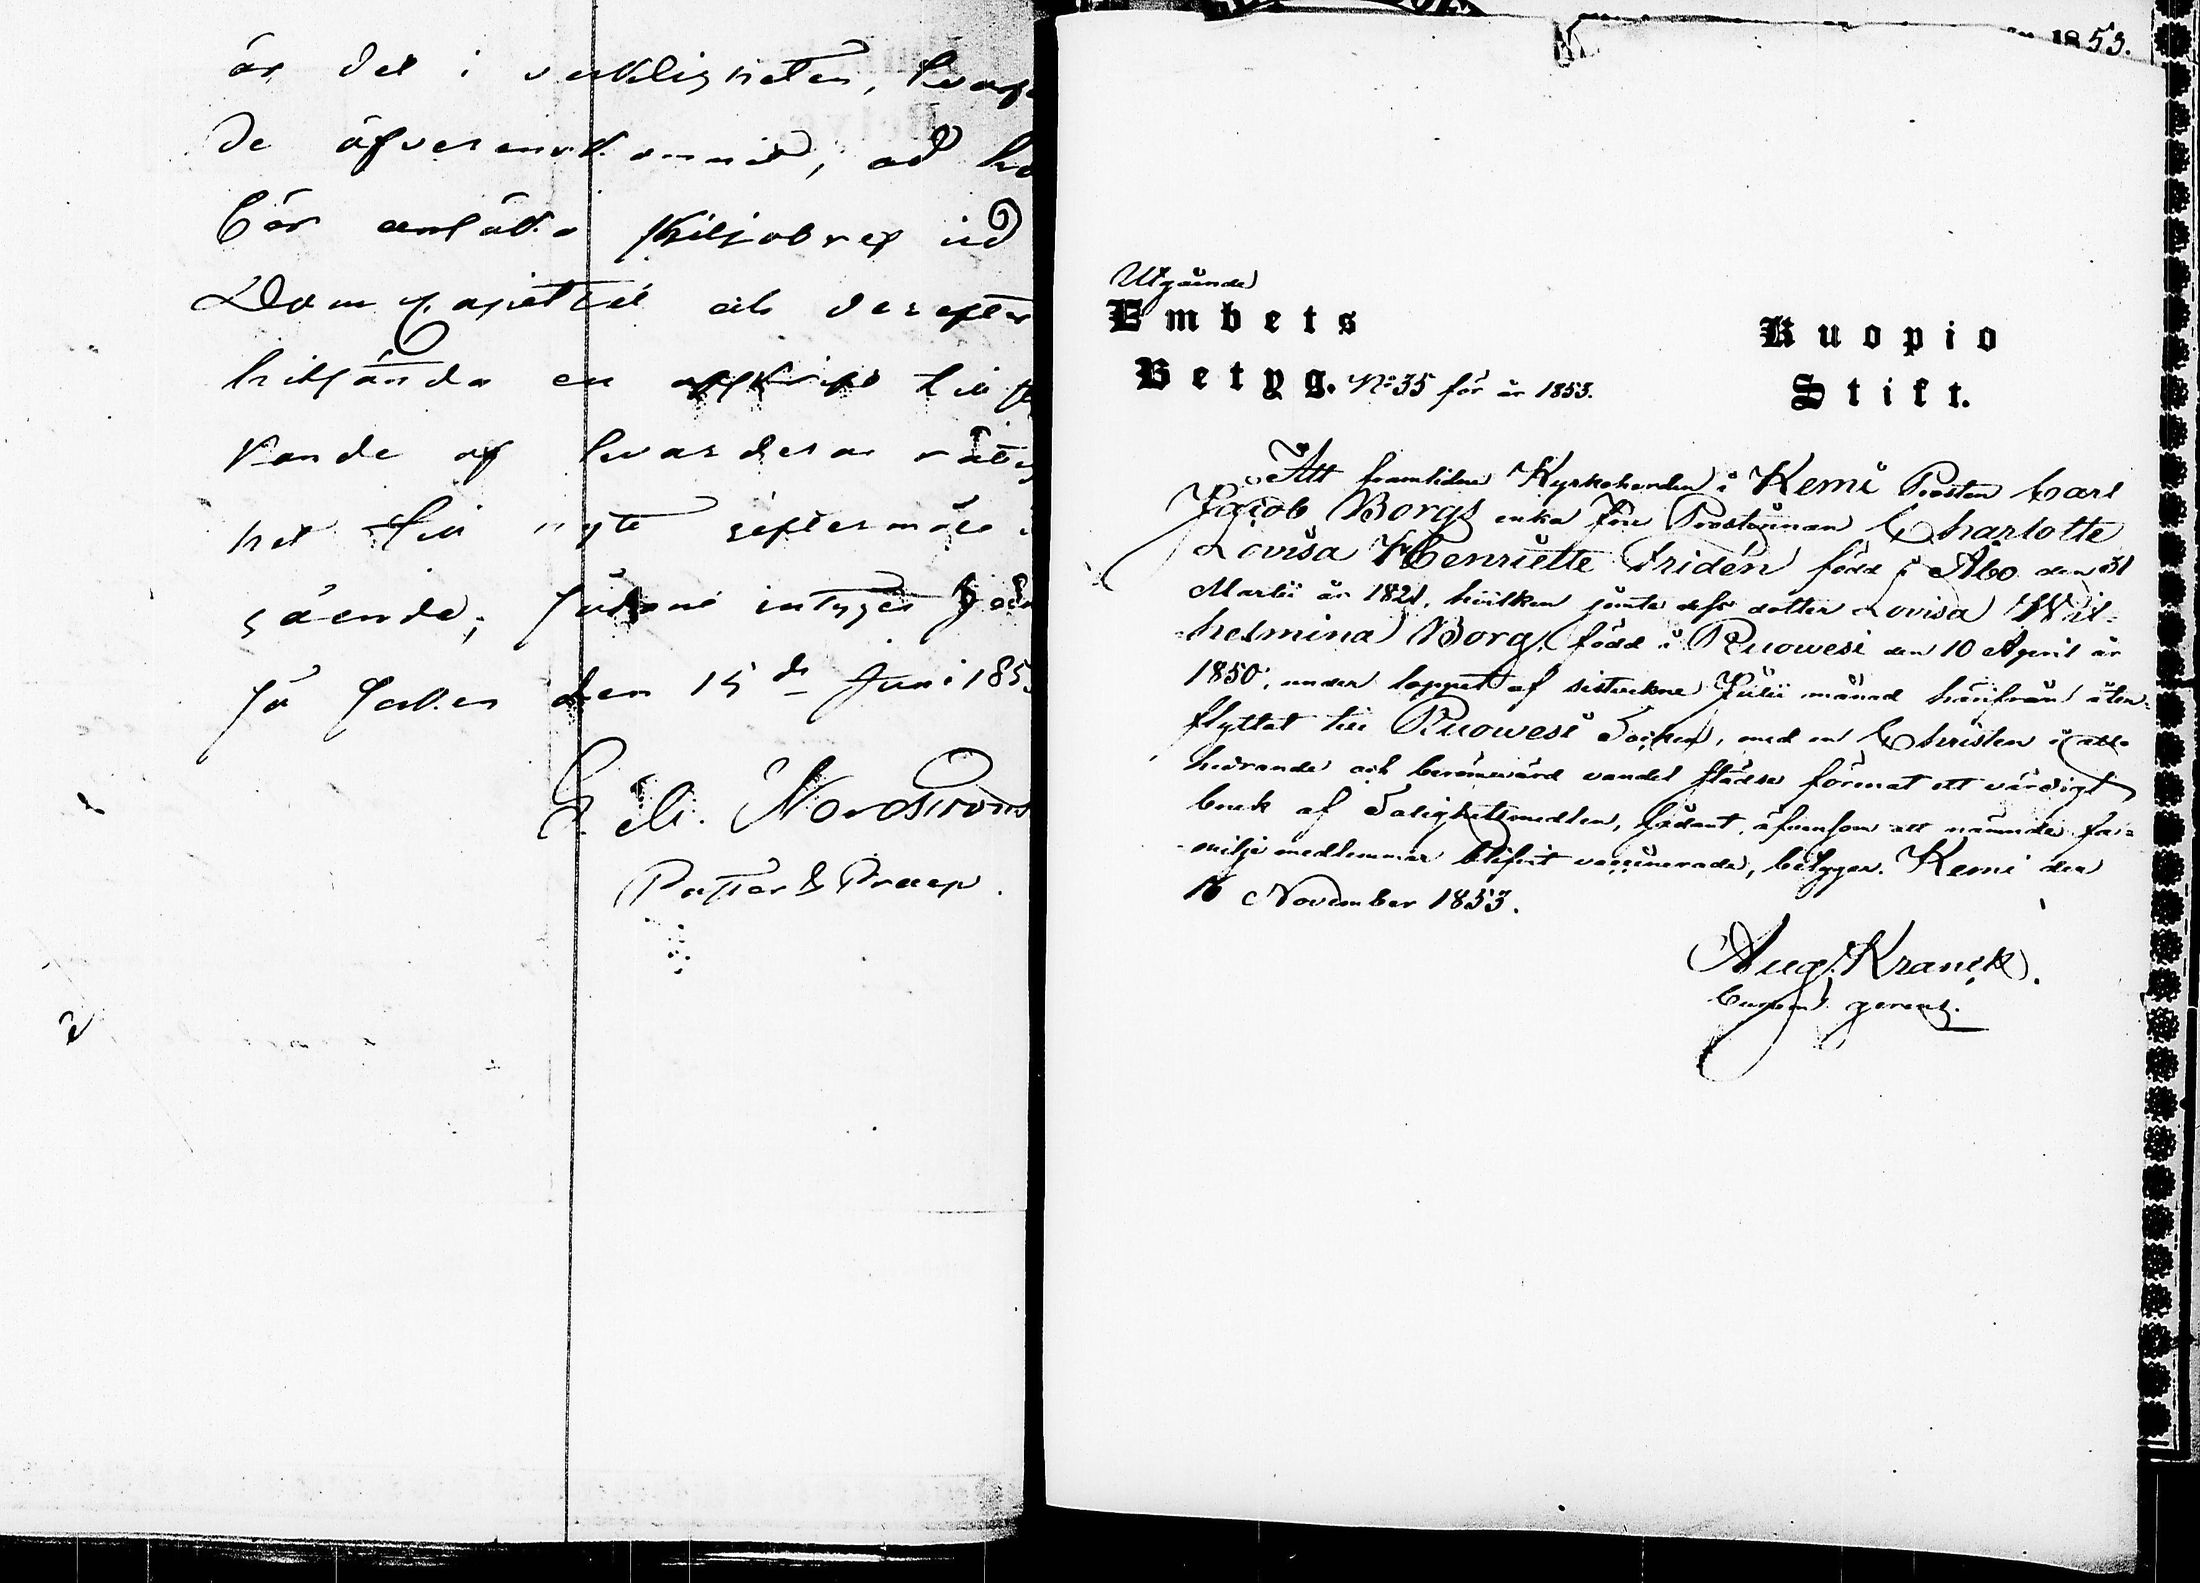 är det i verkligheten,
de öfverenskommit, att
bör ansöka skiljobref vid
Dom Capitlet och derefter
tillsända en afskrift till
kande af hvardera
het till
gående, sådant intygar
den 15de Juni 185
E. M. Nordström
Pastor & Praep.
1853.
Utgående
Embets
Betyg. No 35 för år 1853.
Kuopio
Stift.
Att framlidne Kyrkoherden i Kemi Prosten Carl
Jacob Borgs enka Fru Prostinnan Charlotte
Lovisa Henriette Fridén född i Åbo den 31
Martii år 1821, hvilken jämte dess dotter Lovisa Wil-
helmina Borg, född i Ruowesi den 10 April år
1850, under loppet af sistvekne Julii månad härifrån åter-
flyttat till Ruowesi Socken, med en Christen
hedrande och berömvärd vandel städse förenat ett värdigt
bruk af Salighetsmedlen, sådant, äfvensom att nämnde fa-
milje medlemmar blifvit vaccinerade, betygar. Kemi den
16 November 1853.
Aug. Kranck.
gerens.